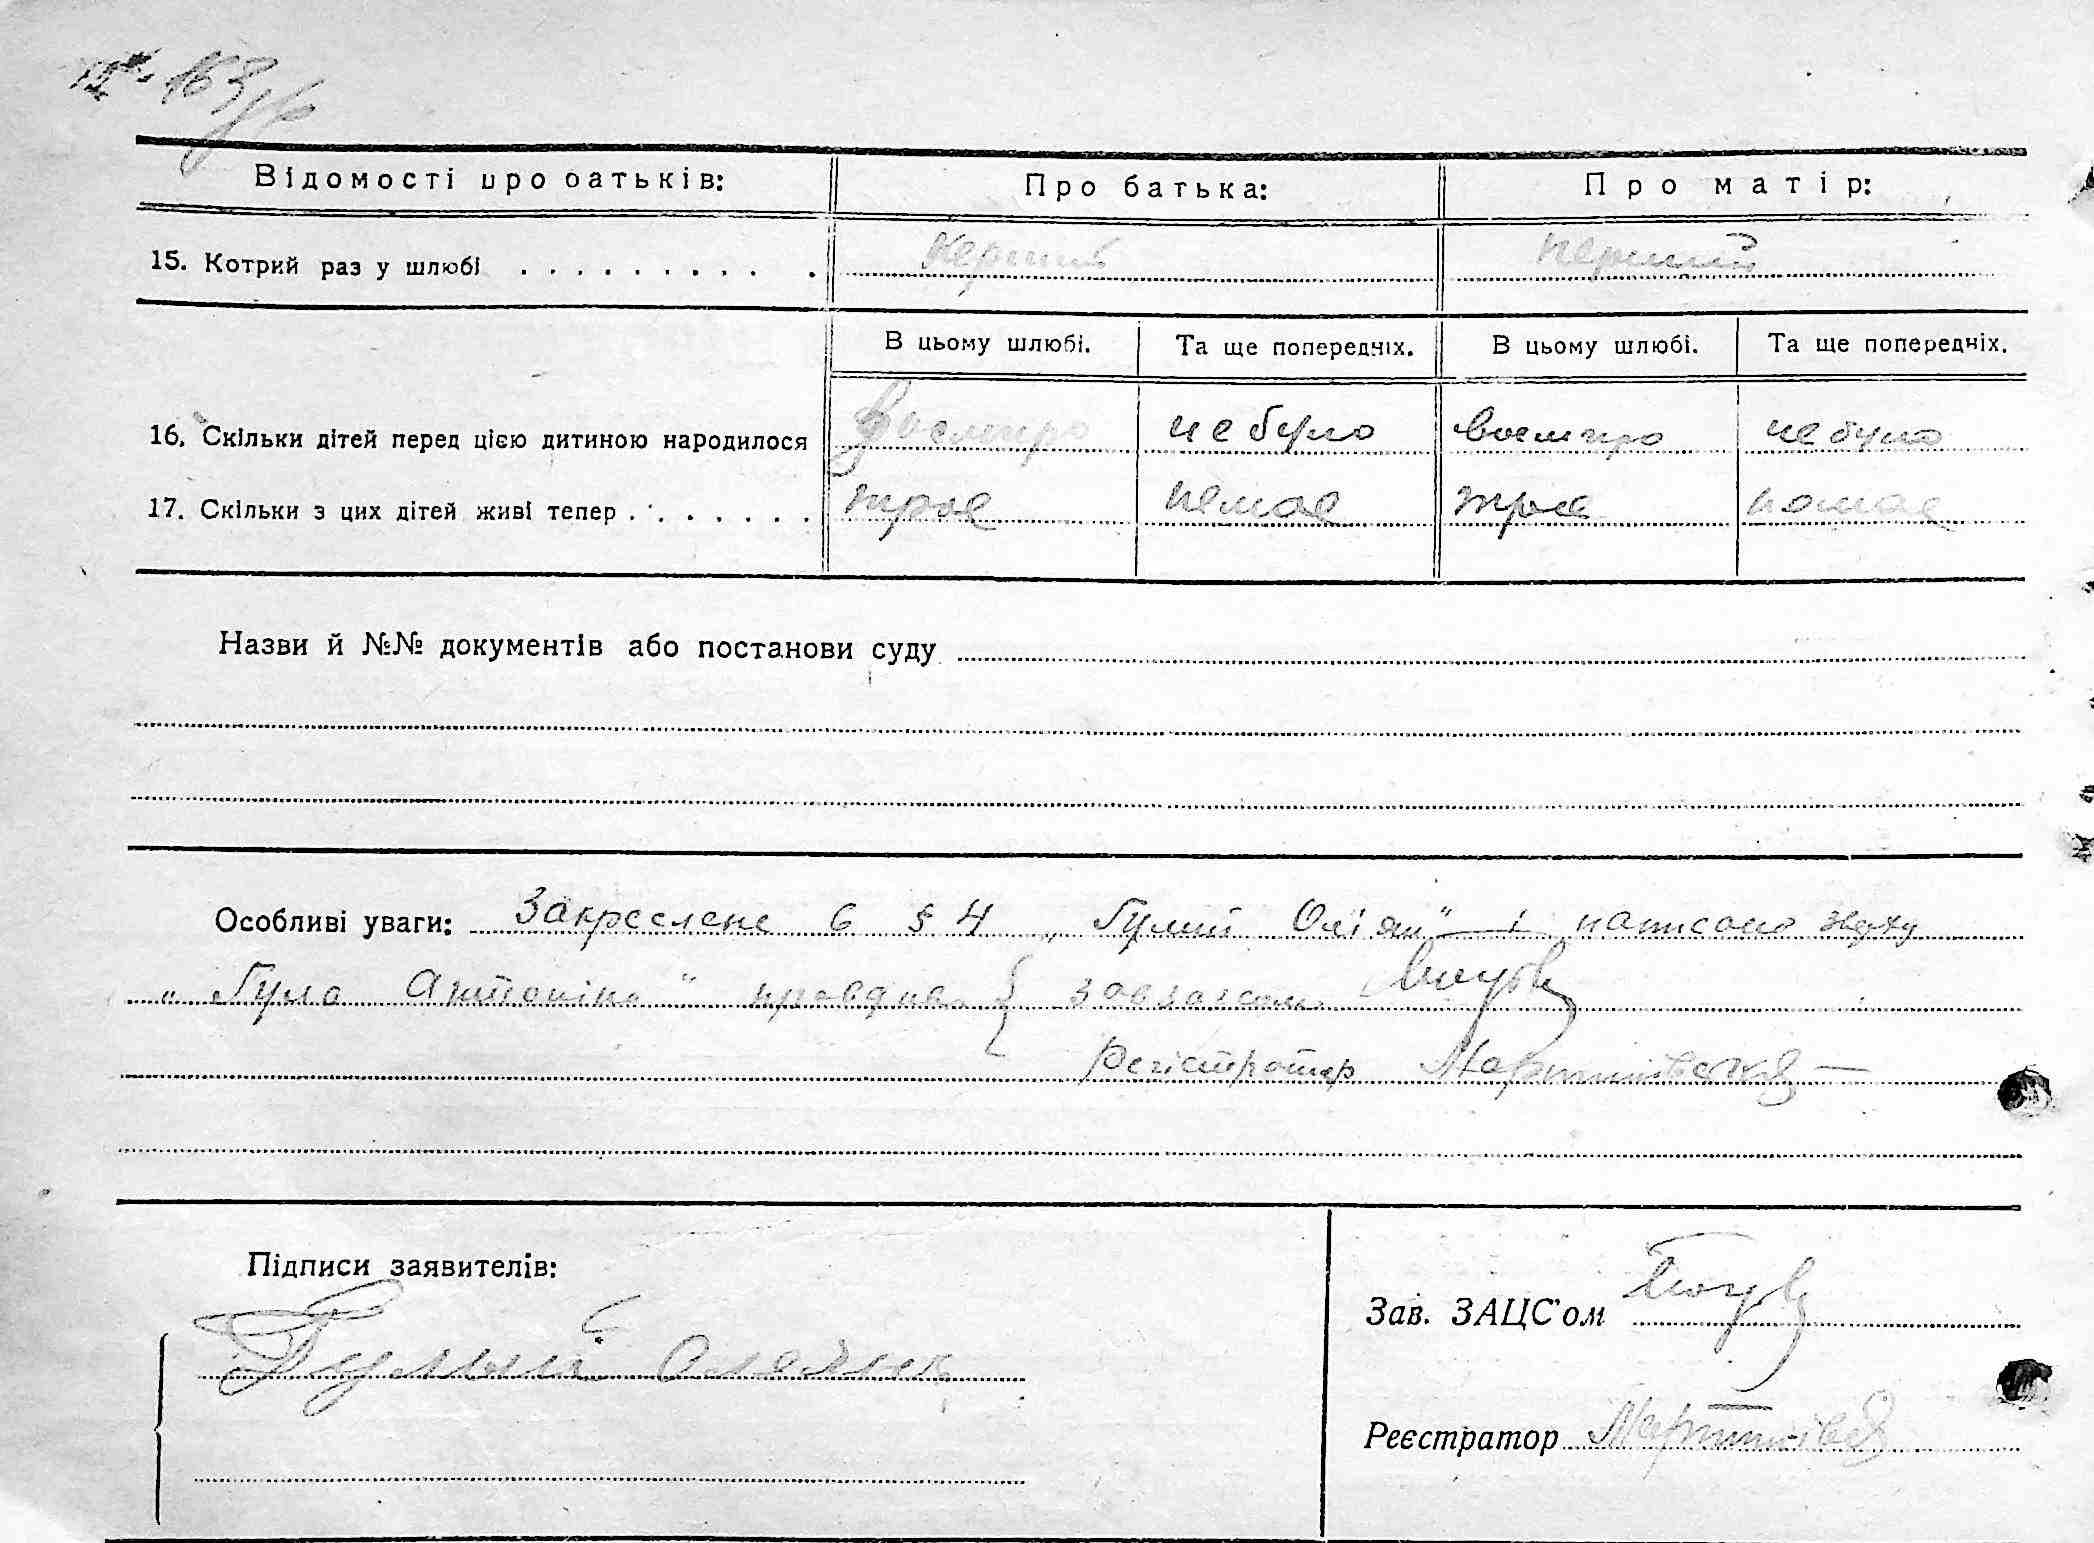 163
Відомості про батьків: Про батька: Про матір:
15. Котрий раз у шлюбі . . . . . . . . . . перший перший
В цьому шлюбі. Та ще попередніх. В цьому шлюбі. Та ще попередніх.
16. Скільки дітей перед цією дитиною народилося восьмиро не було восьмиро не було
17. Скільки з цих дітей живі тепер . . . . . . . троє немає троє немає
Назви й №№ документів або постанови суду
Особливі уваги: Закреслене в § 4 „Гулий Оліян" — і написано зверху
„Гула Антоніна" правдиве. завзагсом
Регістратор Мартинівська —
Підписи заявителів:
Гулый
Зав. ЗАЦС'ом
Реєстратор Мартинівс